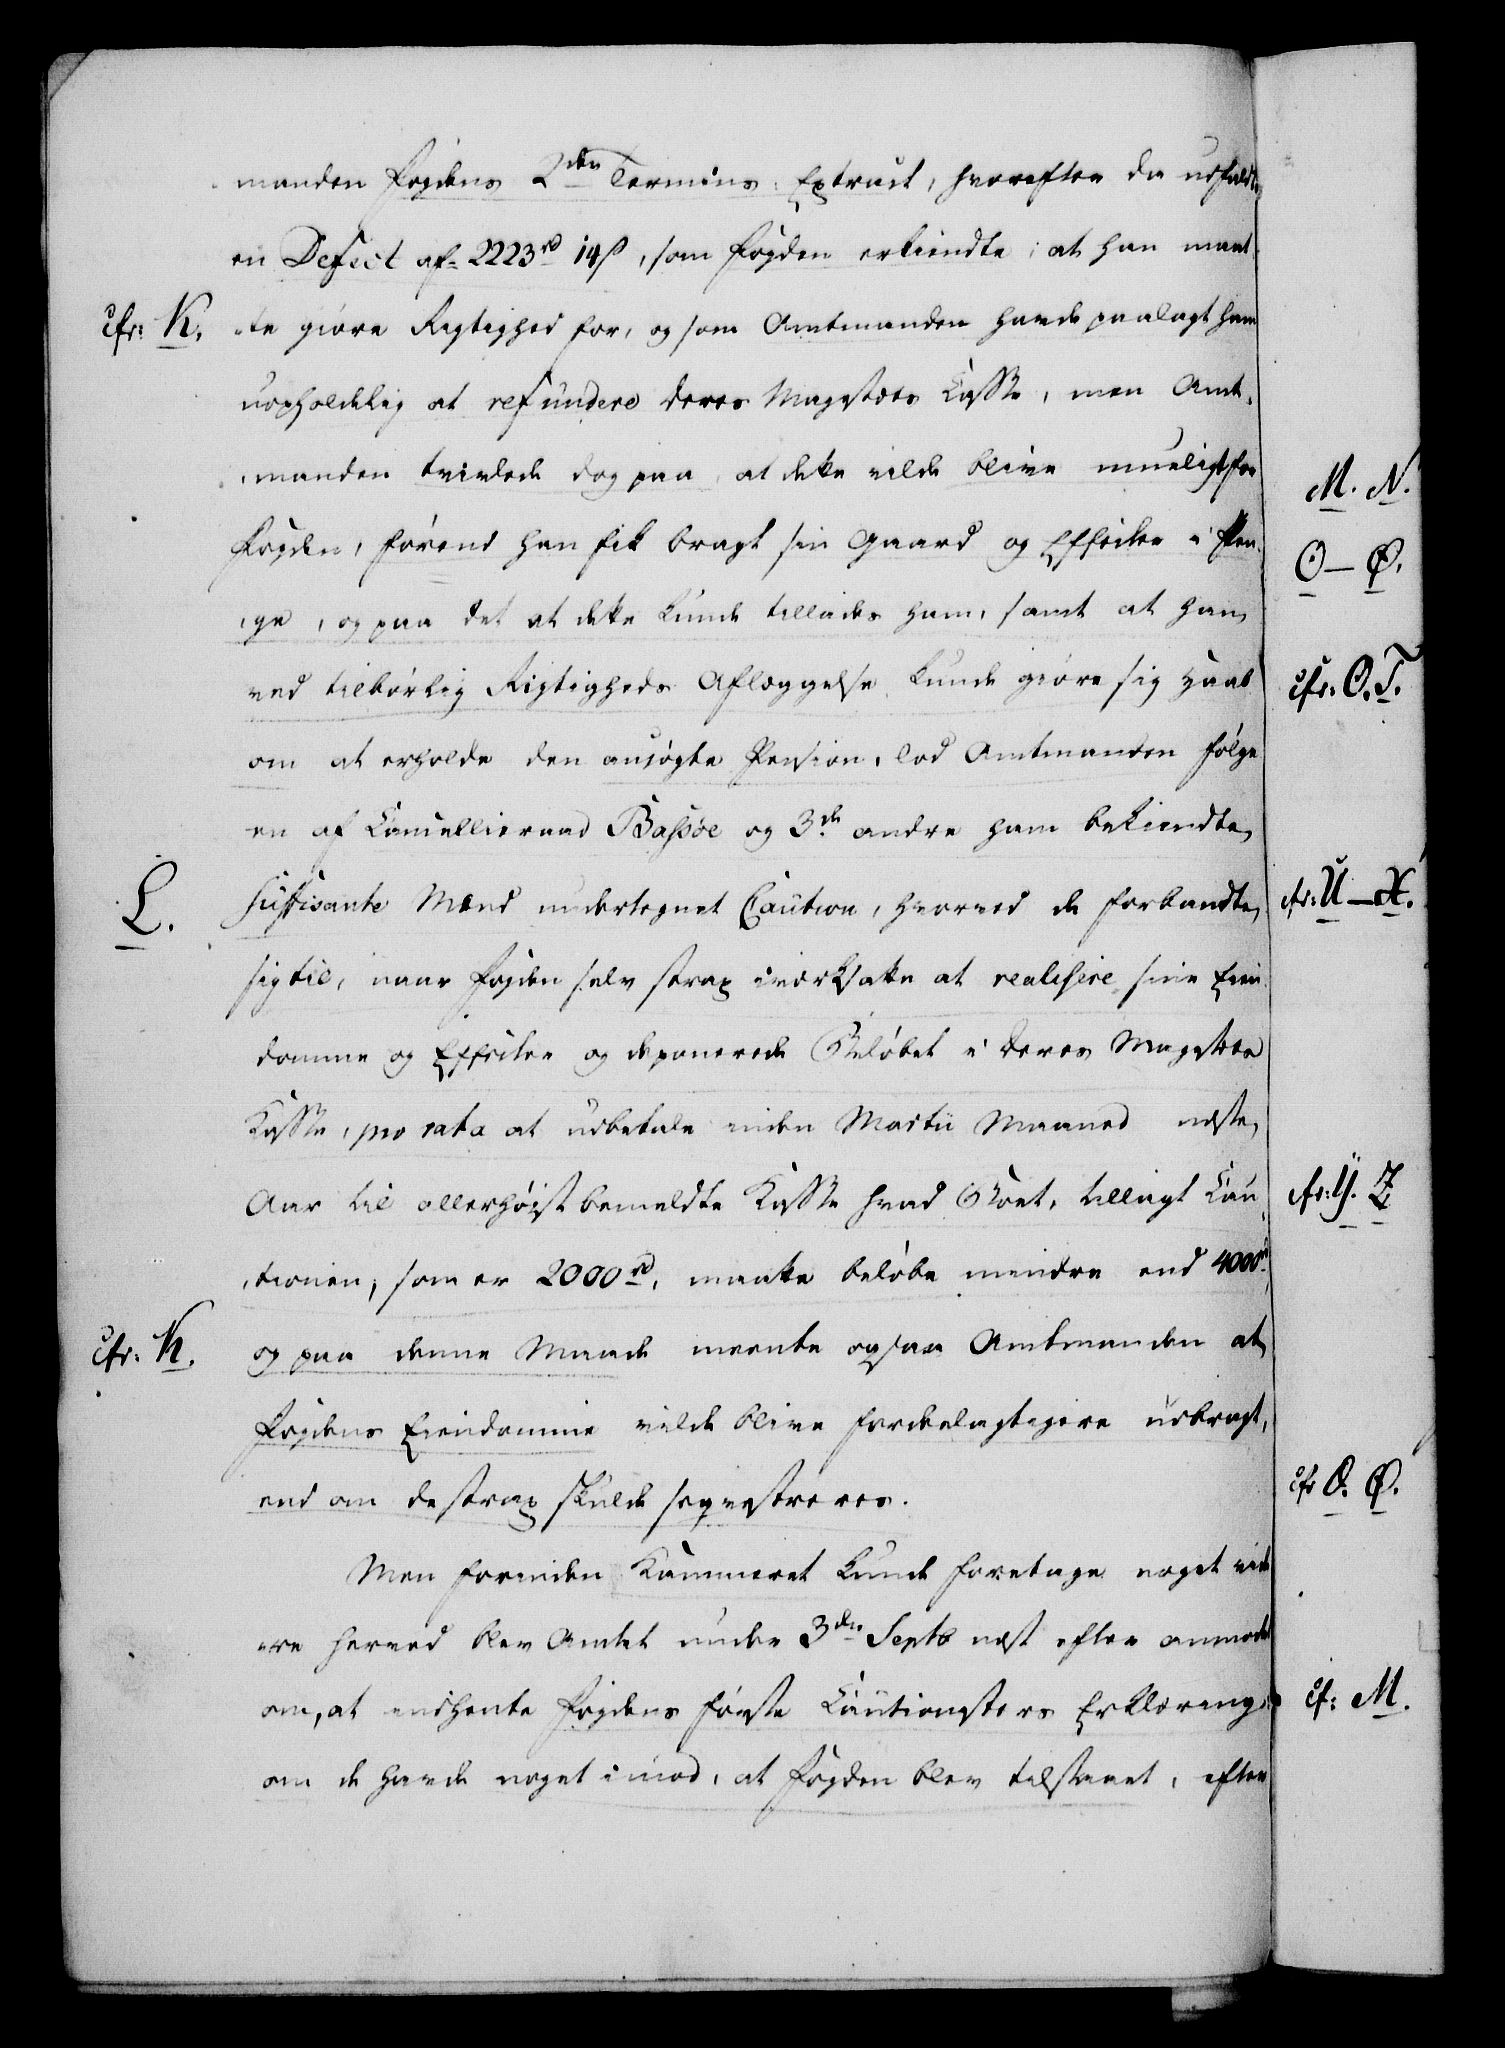 manden Fogdens 2den Termins Extract, hvorefter da udfaldt
en Defect af 2223rd 14ß, som Fogden erkiendte, at han maat
cfr: K. te giøre Rigtighed for, og som Amtmanden havde paalagt ham
uopholdelig at refundere Deres Majestæts Casse, men Amt-
manden tvivlede dog paa at dette vilde blive mueligt for
Fogden, førend han fik bragt sin Gaard og Effecter i Pen-
ge, og paa det at dette kunde tillades ham, samt at han
ved tilbørlig Rigtigheds Aflæggelse kunde giøre sig Haab
om at erholde den ansøgte Pension, lod Amtmanden følge
en af Cancellieraad Bassøe og 3de andre ham bekiendte
L. suffisante Mænd undertegnet Caution, hvorved de forbandte
sig til, naar Fogden selv strax iværksatte at realisere sine Eien
domme og Effecter og deponerede Beløbet i Deres Majestæts
Kasse, pro rata at udbetale inden Martii Maaned næste
Aar til allerhøistbemeldte Kasse hvad Boet, tillagt Cau
tionen, som er 2000rd, maatte beløbe mindre end 4000rd,
cfr: K. og paa denne Maade meente ogsaa Amtmanden at
Fogdens Eiendomme vilde blive fordeelagtigere udbragt,
end om de strax skulde seqvestreres.
Men forinden Kammeret kunde foretage noget vide
re herved blev Amtet under 3den Septb næst efter anmodet
om, at indhente Fogdens første Cautionisters Erklæring,
om de havde noget imod, at Fogden blev tilstaaet, efter
M. N.
O - Ø.
cfr: O. T.
cfr: U - X.
cfr: Y. Z
cfr O. Ø.
cf: M.